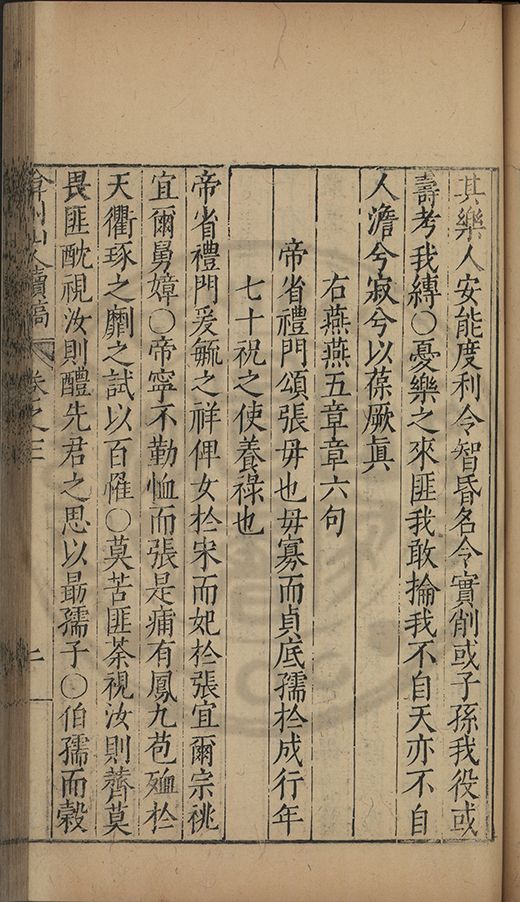 其樂人安能度利令智昏名令實削或子孫我役或
壽考我縛○憂樂之來匪我敢掄我不自天亦不自
人澹兮寂兮以葆厥眞
右燕燕五章章六句
帝省禮門頌張母也母寡而貞底孺於成行年
七十祝之使養祿也
帝省禮門爰毓之祥俾女於宋而妃於張宜爾宗祧
宜爾舅嫜○帝寧不勤恤而張是痡有鳳九苞殈於
天衢琢之劘之試以百罹○莫苦匪荼視汝則薺莫
畏匪酖視汝則醴先君之思以勗孺子○伯孺而穀
弇州山人續稿 卷之三 二